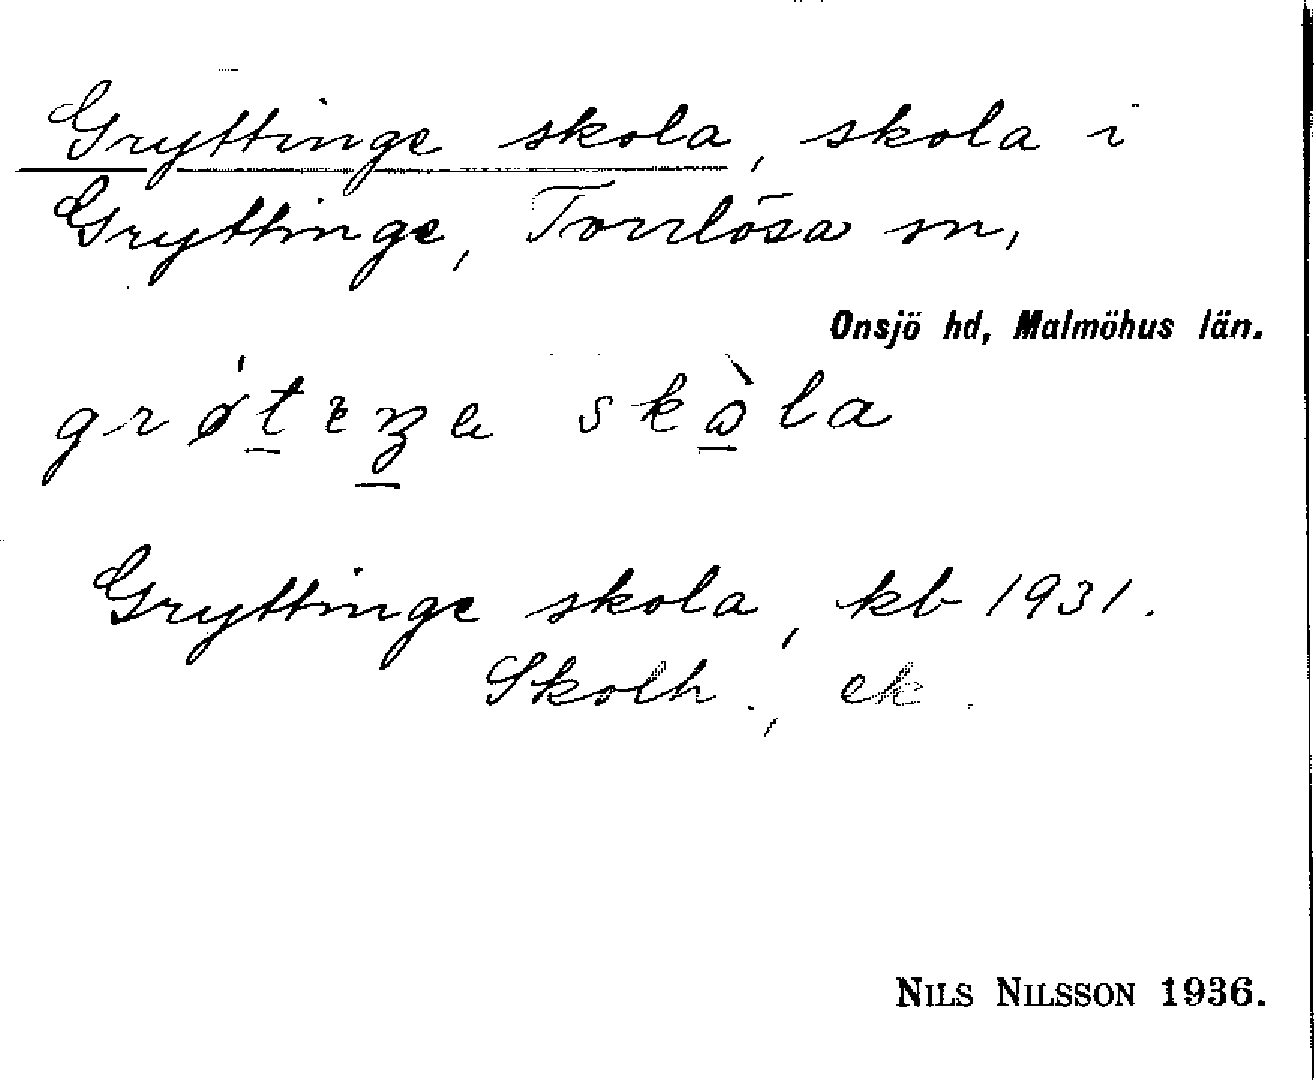 Gryttinge skola, skola i
Gryttinge, Torrlösa sn,
Onsjö hd, Malmöhus län.
Gryttinge skola, kb 1931.
Skolh., ek.
NILS NILSSON 1936.